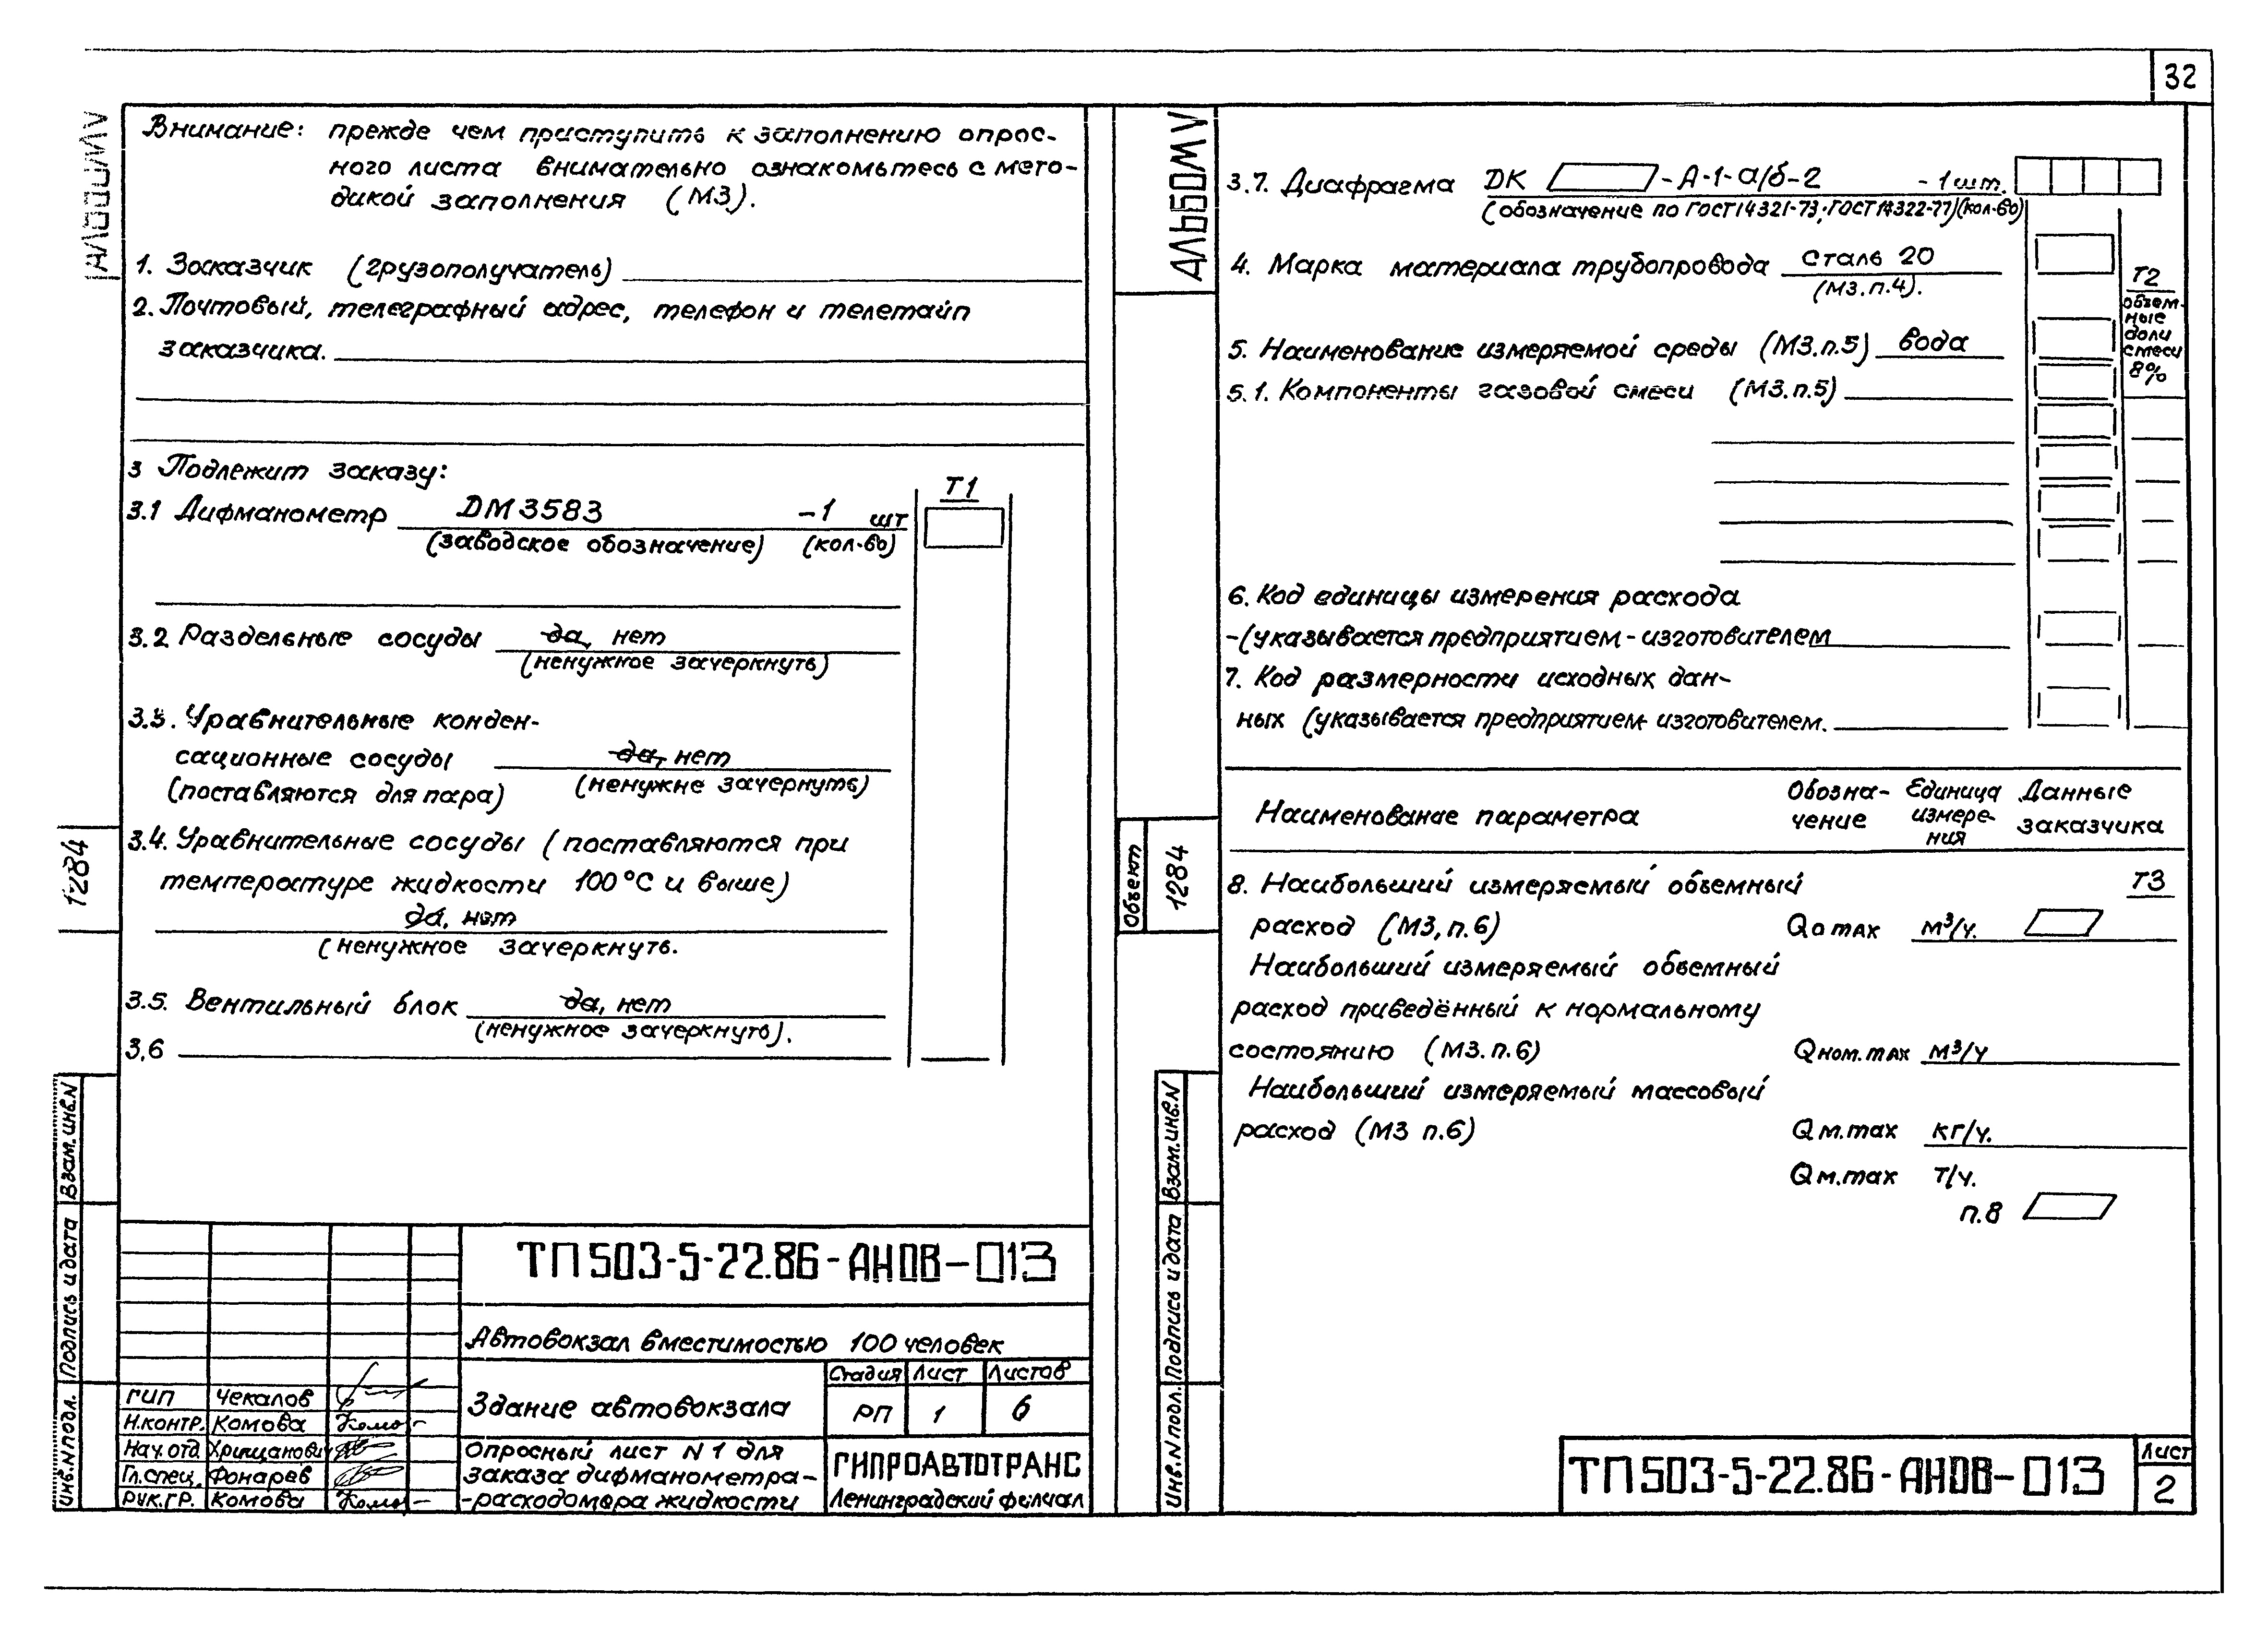 32
АЛЬБОМ V
Внимание: прежде чем приступить к заполнению опрос-
ного листа внимательно ознакомьтесь с мето-
дикой заполнения (МЗ).
1. Заказчик (грузополучатель)
2. Почтовый, телеграфный адрес, телефон и телетайп
заказчика.
3 Подлежит заказу:
Т1
3.1 Дифманометр ДМ3583 -1 шт
(заводское обозначение) (кол-во)
3.2 Раздельные сосуды да, нет
(ненужное зачеркнуть)
3.3. Уравнительные конден-
сационные сосуды да, нет
(поставляются для пара) (ненужне зачернуть)
3.4. Уравнительные сосуды (поставляются при
температуре жидкости 100°С и выше)
да, нет
(ненужное зачеркнуть.
3.5. Вентильный блок да, нет
(ненужное зачеркнуть).
3,6
1284
Взам.инв.N
Подпись и дата
Инв.N подл.
ТП 503-5-22.86-АНОВ-013
Автовокзал вместимостью 100 человек
Здание автовокзала
Стадия Лист Листов
РП 1 6
ГИП Чекалов
Н.контр. Комова
Нач.отд. Хрищанович
Гл.спец. Фонарев
Рук.гр. Комова
Опросный лист N 1 для
заказа дифманометра-
-расходомера жидкости
ГИПРОАВТОТРАНС
Ленинградский филиал
АЛЬБОМ V
3.7. Диафрагма ДК -А-1-а/б-2 -1шт.
(обозначение по ГОСТ14321-73, ГОСТ14322-77)(кол-во)
4. Марка материала трубопровода сталь 20
(МЗ.п.4).
Т2
объем-
ные
доли
смеси
в%
5. Наименование измеряемой среды (МЗ.п.5) вода
5.1. Компоненты газовой смеси (МЗ.п.5)
6. Код единицы измерения расхода
-(указывается предприятием-изготовителем
7. Код размерности исходных дан-
ных (указывается предприятием-изготовителем.
Наименование параметра
Обозна-
чение
Единица
измере-
ния
Данные
заказчика
8. Наибольший измеряемый объемный Т3
расход (МЗ, п.6) Qо max м³/ч.
Наибольший измеряемый объемный
расход приведённый к нормальному
состоянию (МЗ.п.6) Qном.max м³/ч
Наибольший измеряемый массовый
расход (МЗ п.6) Qм.max кг/ч.
Qм.max т/ч.
п.8
Объект
1284
Взам.инв.N
Подпись и дата
Инв.N подл.
ТП 503-5-22.86-АНОВ-013
Лист
2